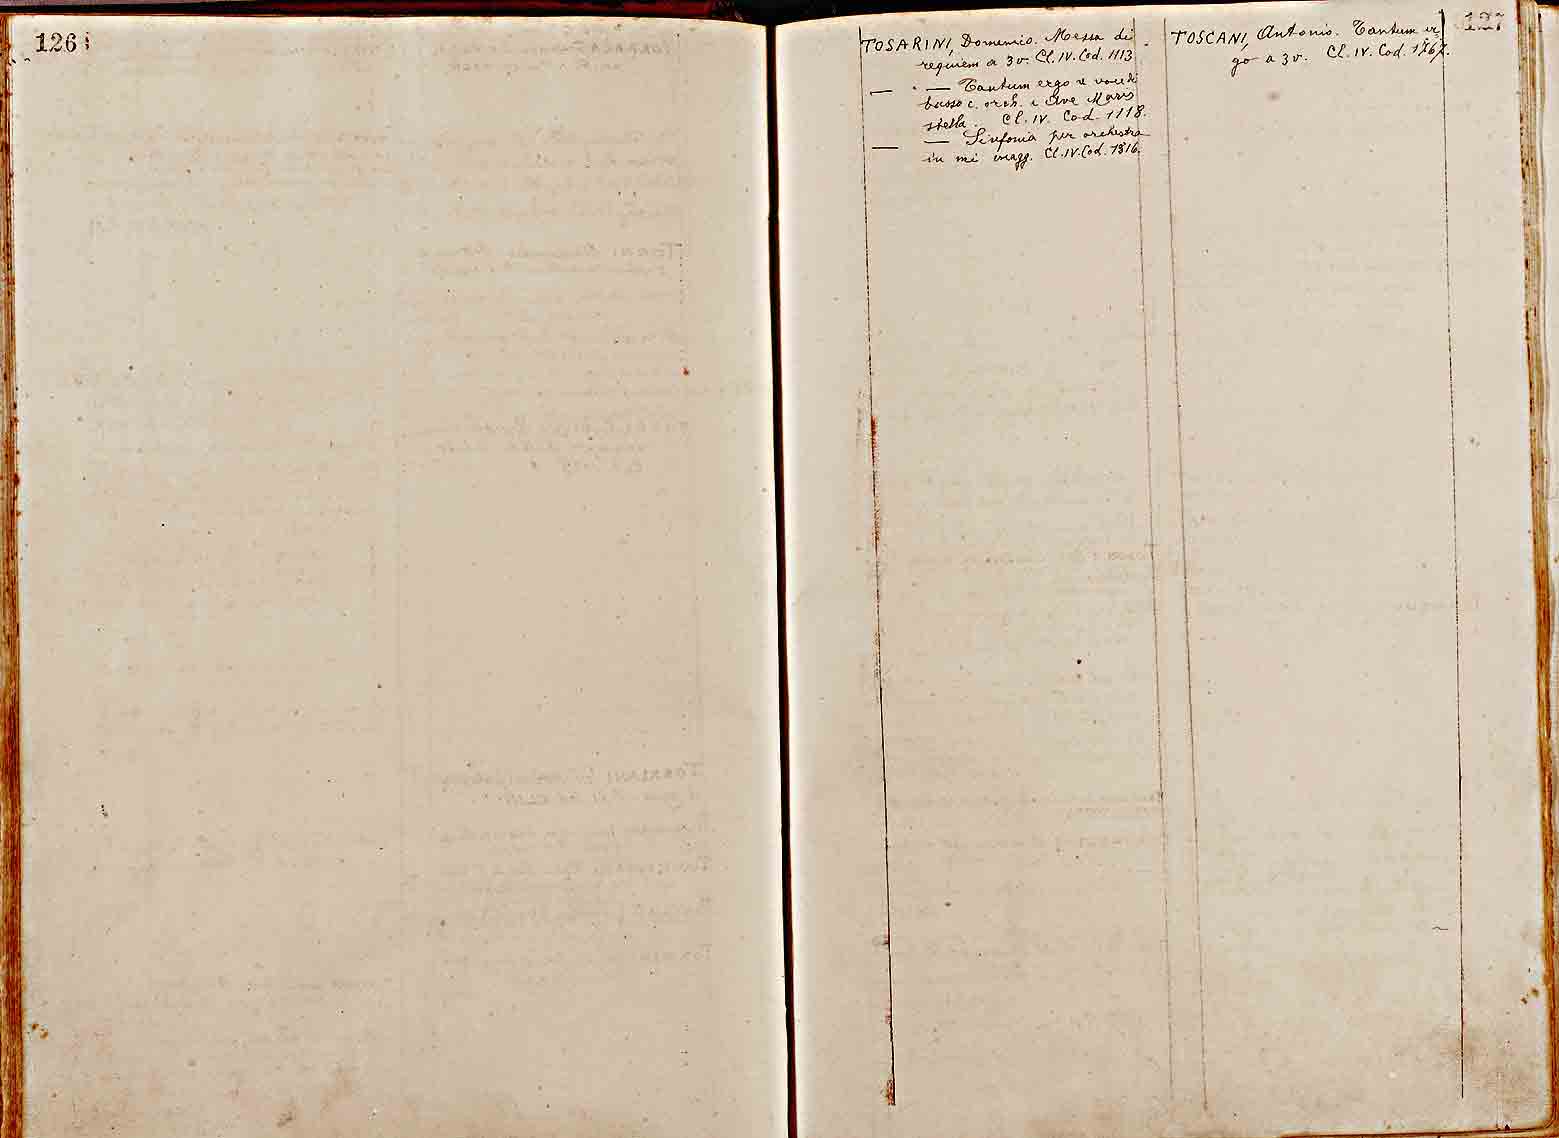 126
127
TOSARINI, Domenico. Messa di
requiem a 3 v. Cl. IV. Cod. 1113
— . — Tantum ergo a voce di
basso c. orch. e Ave Maris
stella. Cl. IV. Cod. 1118.
— — Sinfonia per orchestra
in mi magg. Cl. IV. Cod. 1316.
TOSCANI, Antonio. Tantum er
go a 3 v. Cl. IV. Cod. 1767.